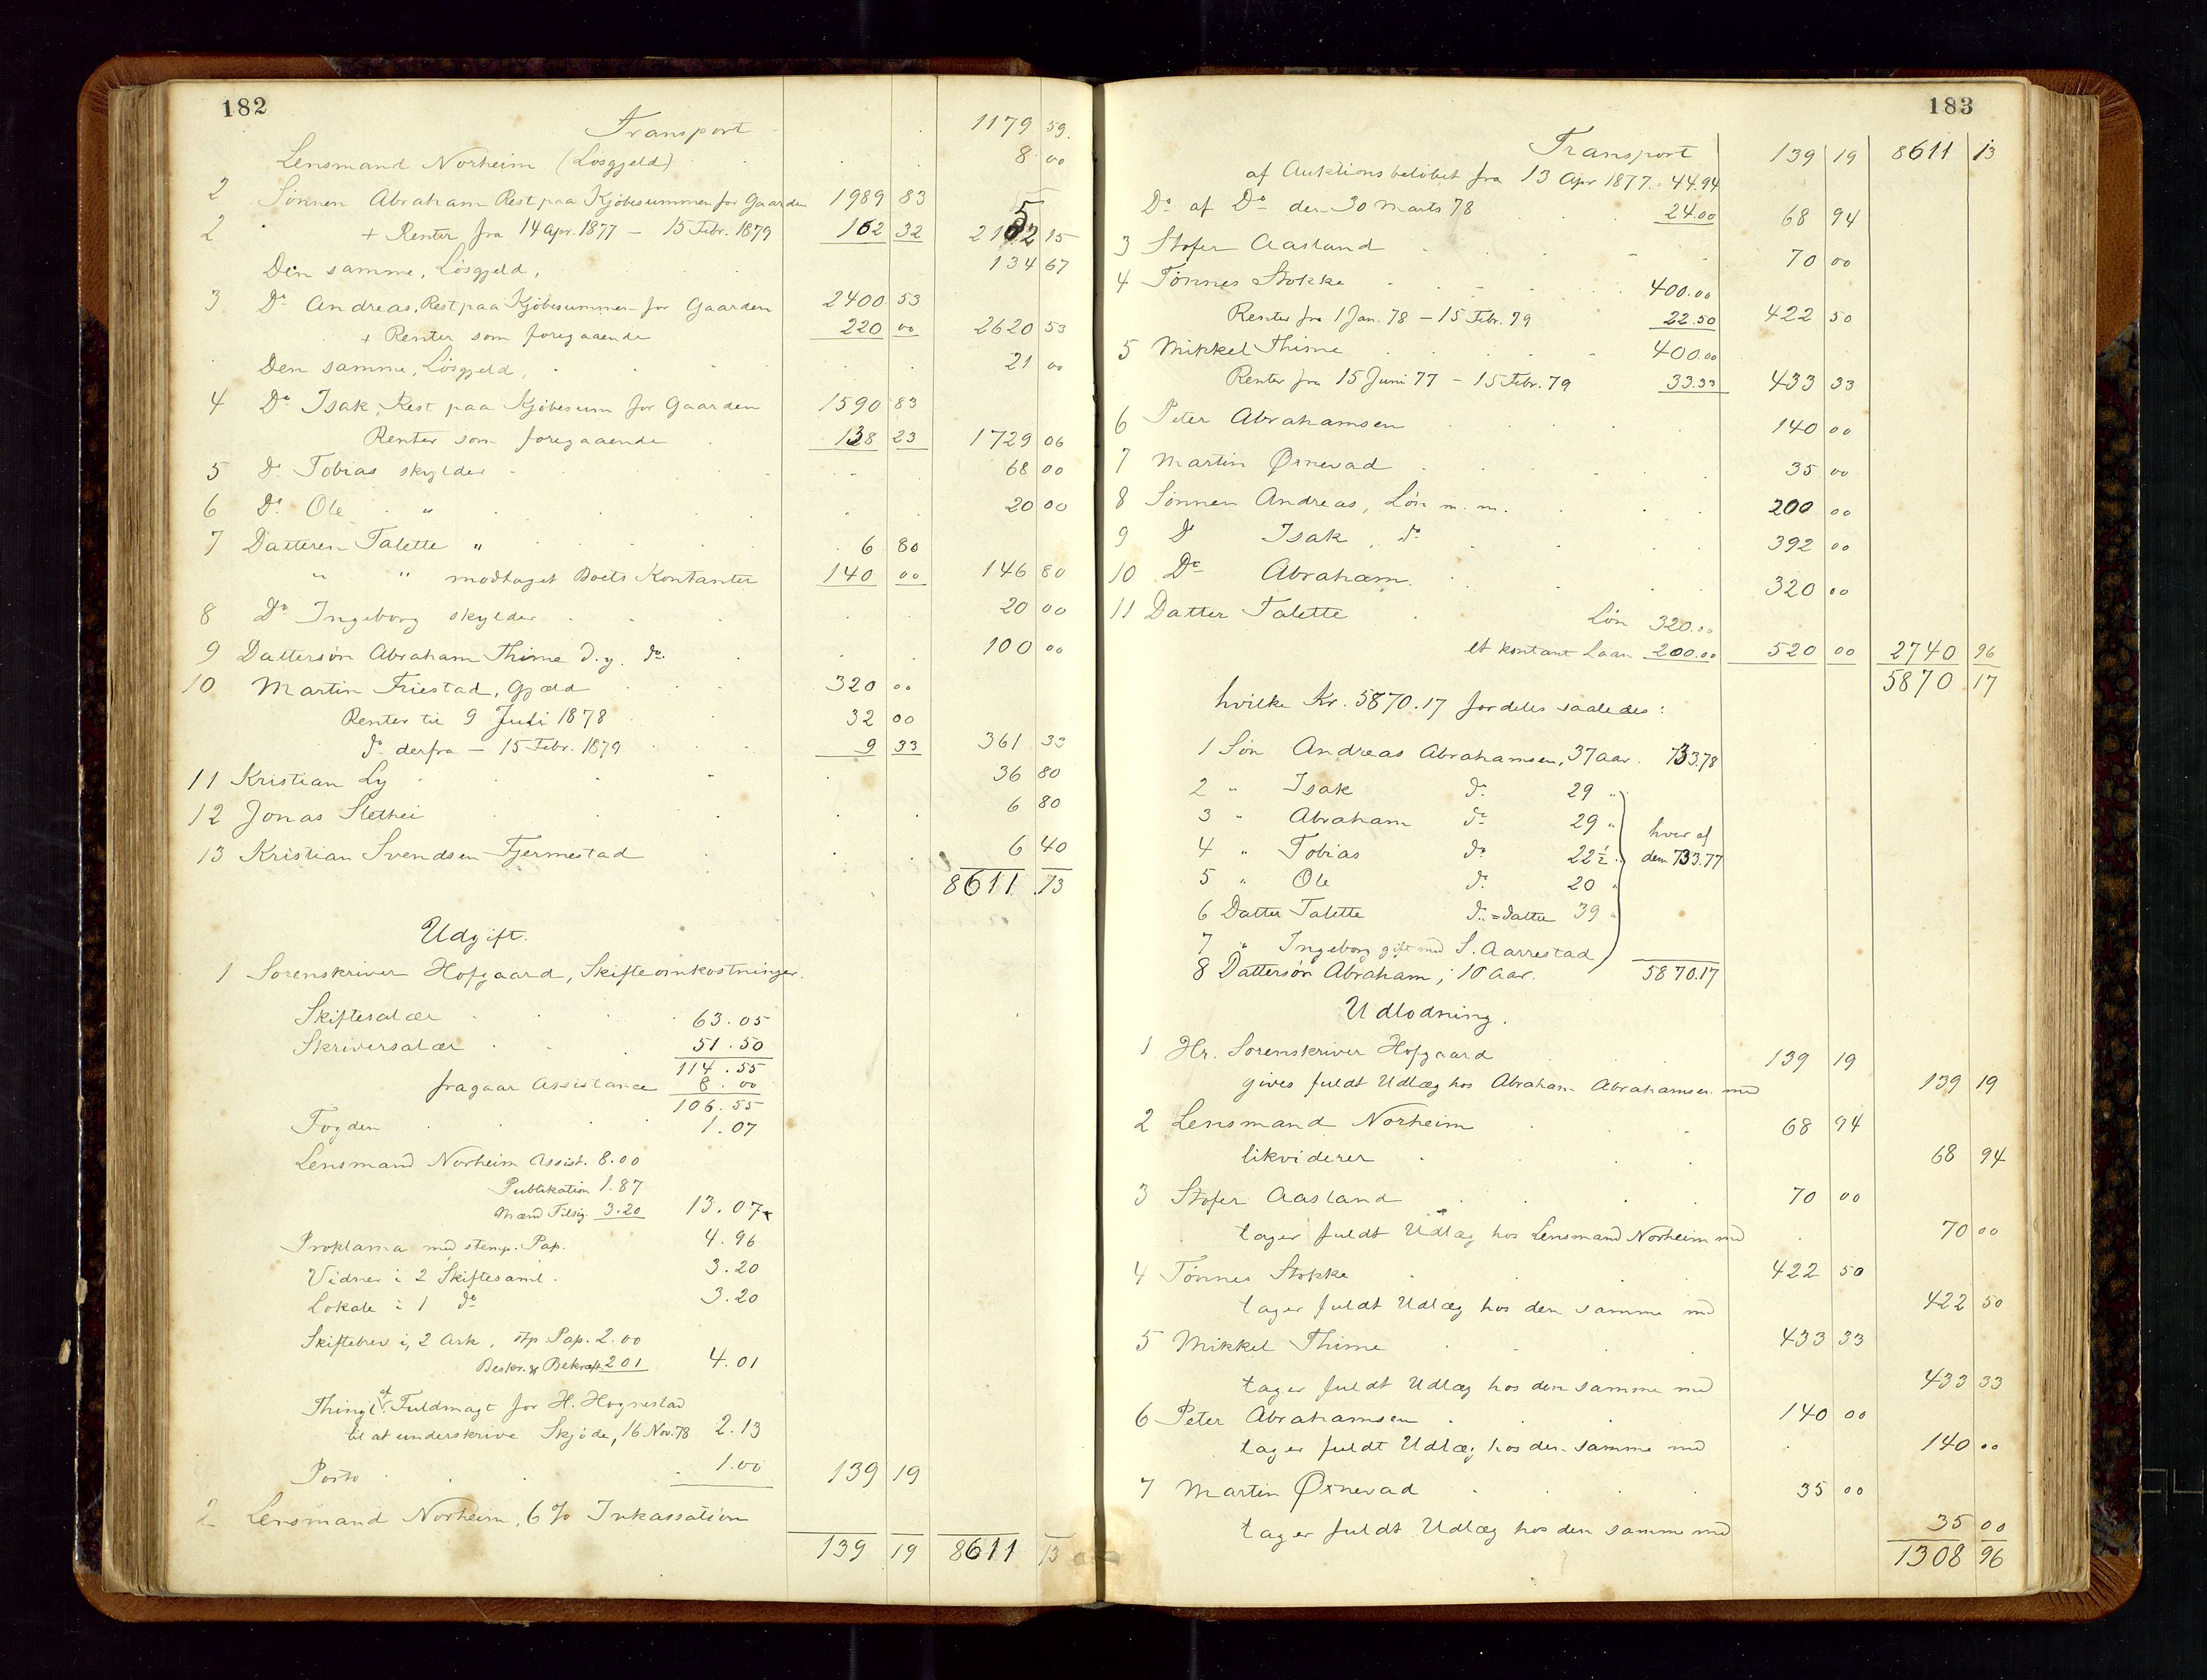 182
Transport 1179 59.
Lensmand Norheim (Løsgjeld) 8 00
2 Sønnen Abraham Rest paa Kjøbesummen for Gaarden 1989 83
2 + Renter fra 14 Apr. 1877 – 15 Febr. 1879 162 32 2152 15
Den samme, Løsgjeld, 134 67
3 Do Andreas, Rest paa Kjøbesummen for Gaarden 2400 53
+ Renter som foregaaende 220 00 2620 53
Den samme, Løsgjeld, 21 00
4 Do Isak, Rest paa Kjøbesum for Gaarden 1590 83
Renter som foregaaende 138 23 1729 06
5 Do Tobias skylder 68 00
6 Do Ole " 20 00
7 Datteren Talette " 6 80
" " modtaget Boets Kontanter 140 00 146 80
8 Do Ingeborg skylder 20 00
9 Dattersøn Abraham Thime d.y. do 100 00
10 Martin Friestad, Gjæld 320 00
Renter til 9 Juli 1878 32 00
do derfra – 15 Febr. 1879 9 33 361 33
11 Kristian Ly 36 80
12 Jonas Slethei 6 80
13 Kristian Svendsen Fjermestad 6 40
8611 13
Udgift.
1 Sorenskriver Hofgaard, Skifteomkostninger.
Skiftesalær 63.05
Skriversalær 51.50
114.55
fragaar Assistance 8.00
106.55
Fogden 1.07
Lensmand Norheim Assist. 8.00
Publikation 1.87
Mænd Tilsig. 3.20 13.07
Proklama med stemp. Pap. 4.96
Vidner i 2 Skiftesaml. 3.20
Lokale i 1 do 3.20
Skiftebrev i, 2 Ark, stp. Pap. 2.00
Beskr. & Bekræft. 2 01 4.01
Thingl. af Fuldmagt for H. Hognestad
til at underskrive Skjøde, 16 Nov. 78 2.13
Porto 1.00 139 19
2 Lensmand Norheim, 6 % Inkassation
139 19 8611 13
183
Transport 139 19 8611 13
af Auktionsbeløbet fra 13 Apr 1877. 44.94
Do af Do den 30 Marts 78 24.00 68 94
3 Stofer Aasland 70 00
4 Tønnes Stokke 400.00
Renter fra 1 Jan. 78 – 15 Febr. 79 22.50 422 50
5 Mikkel Thime 400.00
Renter fra 15 Juni 77 – 15 Febr. 79 33.33 433 33
6 Peter Abrahamsen 140 00
7 Martin Øxnevad 35 00
8 Sønnen Andreas, Løn m. m. 200 00
9 Do Isak, do 392 00
10 Do Abraham 320 00
11 Datter Talette Løn 320.00
et kontant Laan 200.00 520 00 2740 96
5870 17
hvilke Kr. 5870.17 fordeles saaledes:
1 Søn Andreas Abrahamsen, 37 aar. 733.78
2 " Isak do 29 "
3 " Abraham do 29 " hver af
4 " Tobias do 22½ " dem 733.77
5 " Ole do 20 "
6 Datter Talette do = datter 39 "
7 " Ingeborg gift med S. Aarrestad
8 Dattersøn Abraham, 10 aar. 5870.17
Udlodning.
1 Hr. Sorenskriver Hofgaard 139 19
gives fuldt Udlæg hos Abraham Abrahamsen med 139 19
2 Lensmand Norheim 68 94
likviderer 68 94
3 Stofer Aasland 70 00
tager fuldt Udlæg hos Lensmand Norheim med 70 00
4 Tønnes Stokke 422 50
tager fuldt Udlæg hos den samme med 422 50
5 Mikkel Thime 433 33
tager fuldt Udlæg hos den samme med 433 33
6 Peter Abrahamsen 140 00
tager fuldt Udlæg hos den samme med 140 00
7 Martin Øxnevad 35 00
tager fuldt Udlæg hos den samme med 35 00
1308 96